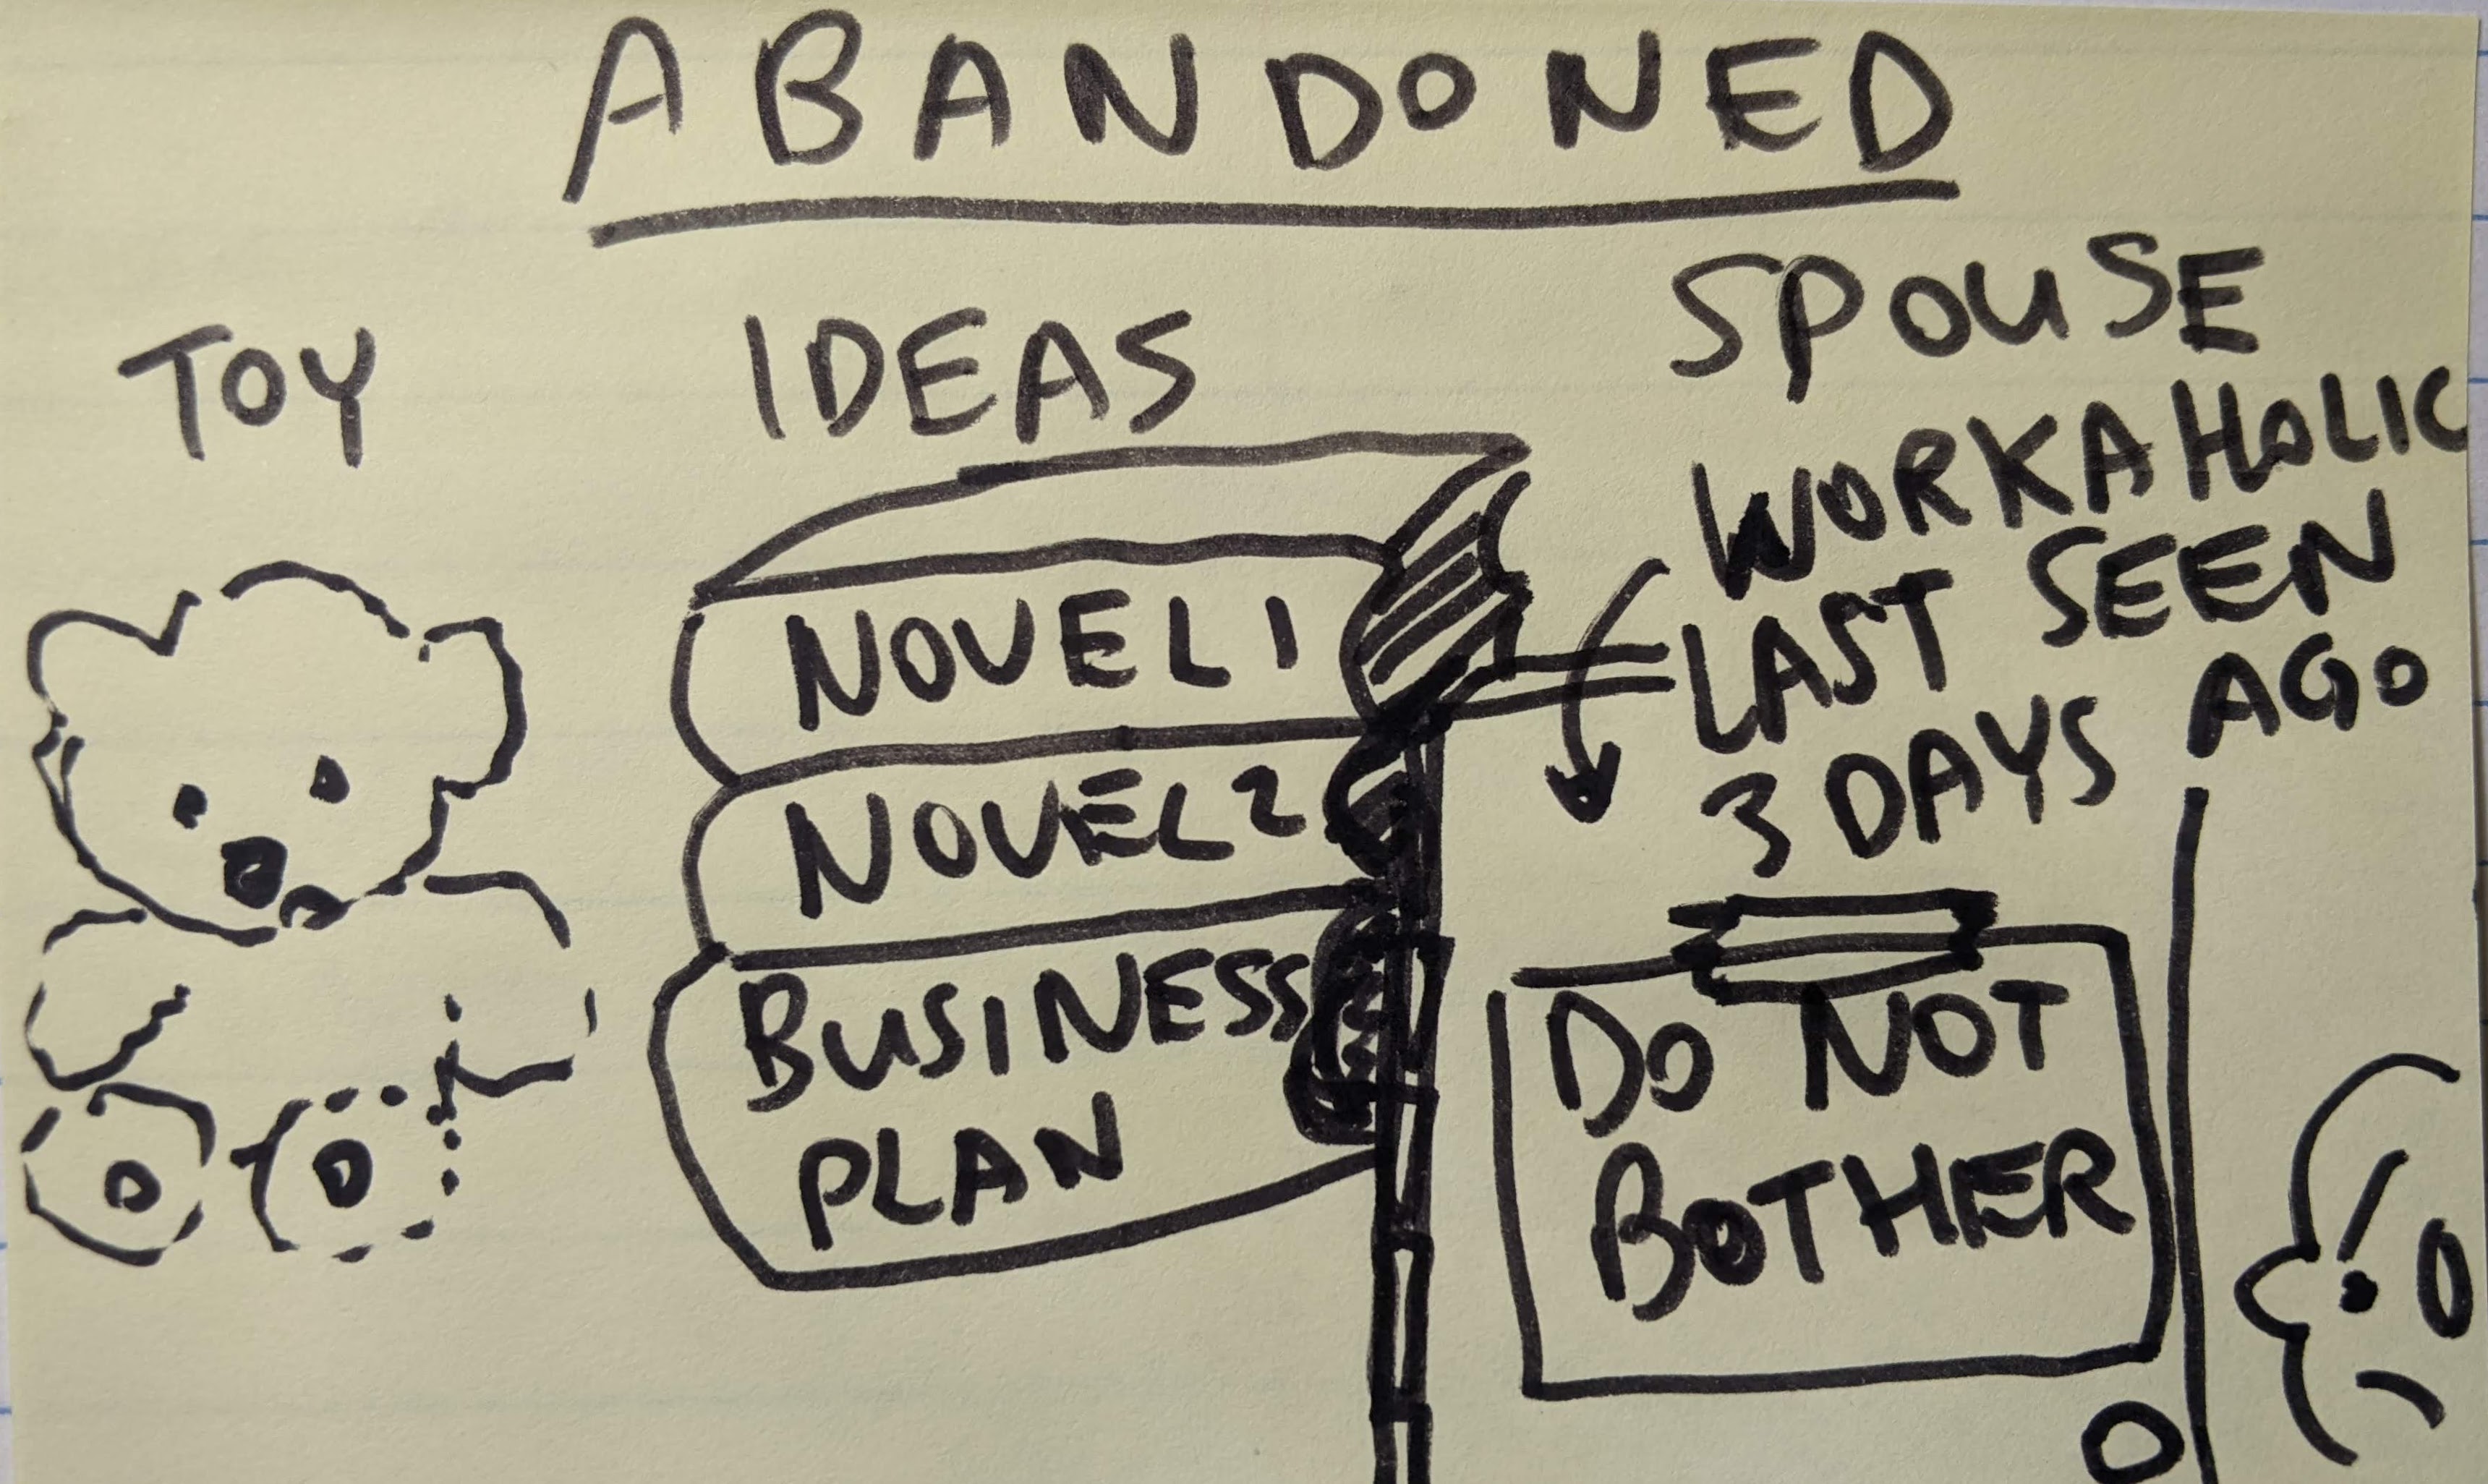 ABANDONED
TOY
IDEAS
NOVEL 1
NOVEL 2
BUSINESS
PLAN
SPOUSE
WORKAHOLIC
LAST SEEN
3 DAYS AGO
DO NOT
BOTHER